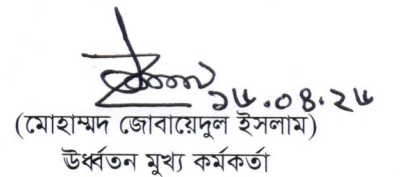 ১৫.০৪.২৫
(মোহাম্মদ জোবায়েদুল ইসলাম)
ঊর্ধ্বতন মুখ্য কর্মকর্তা